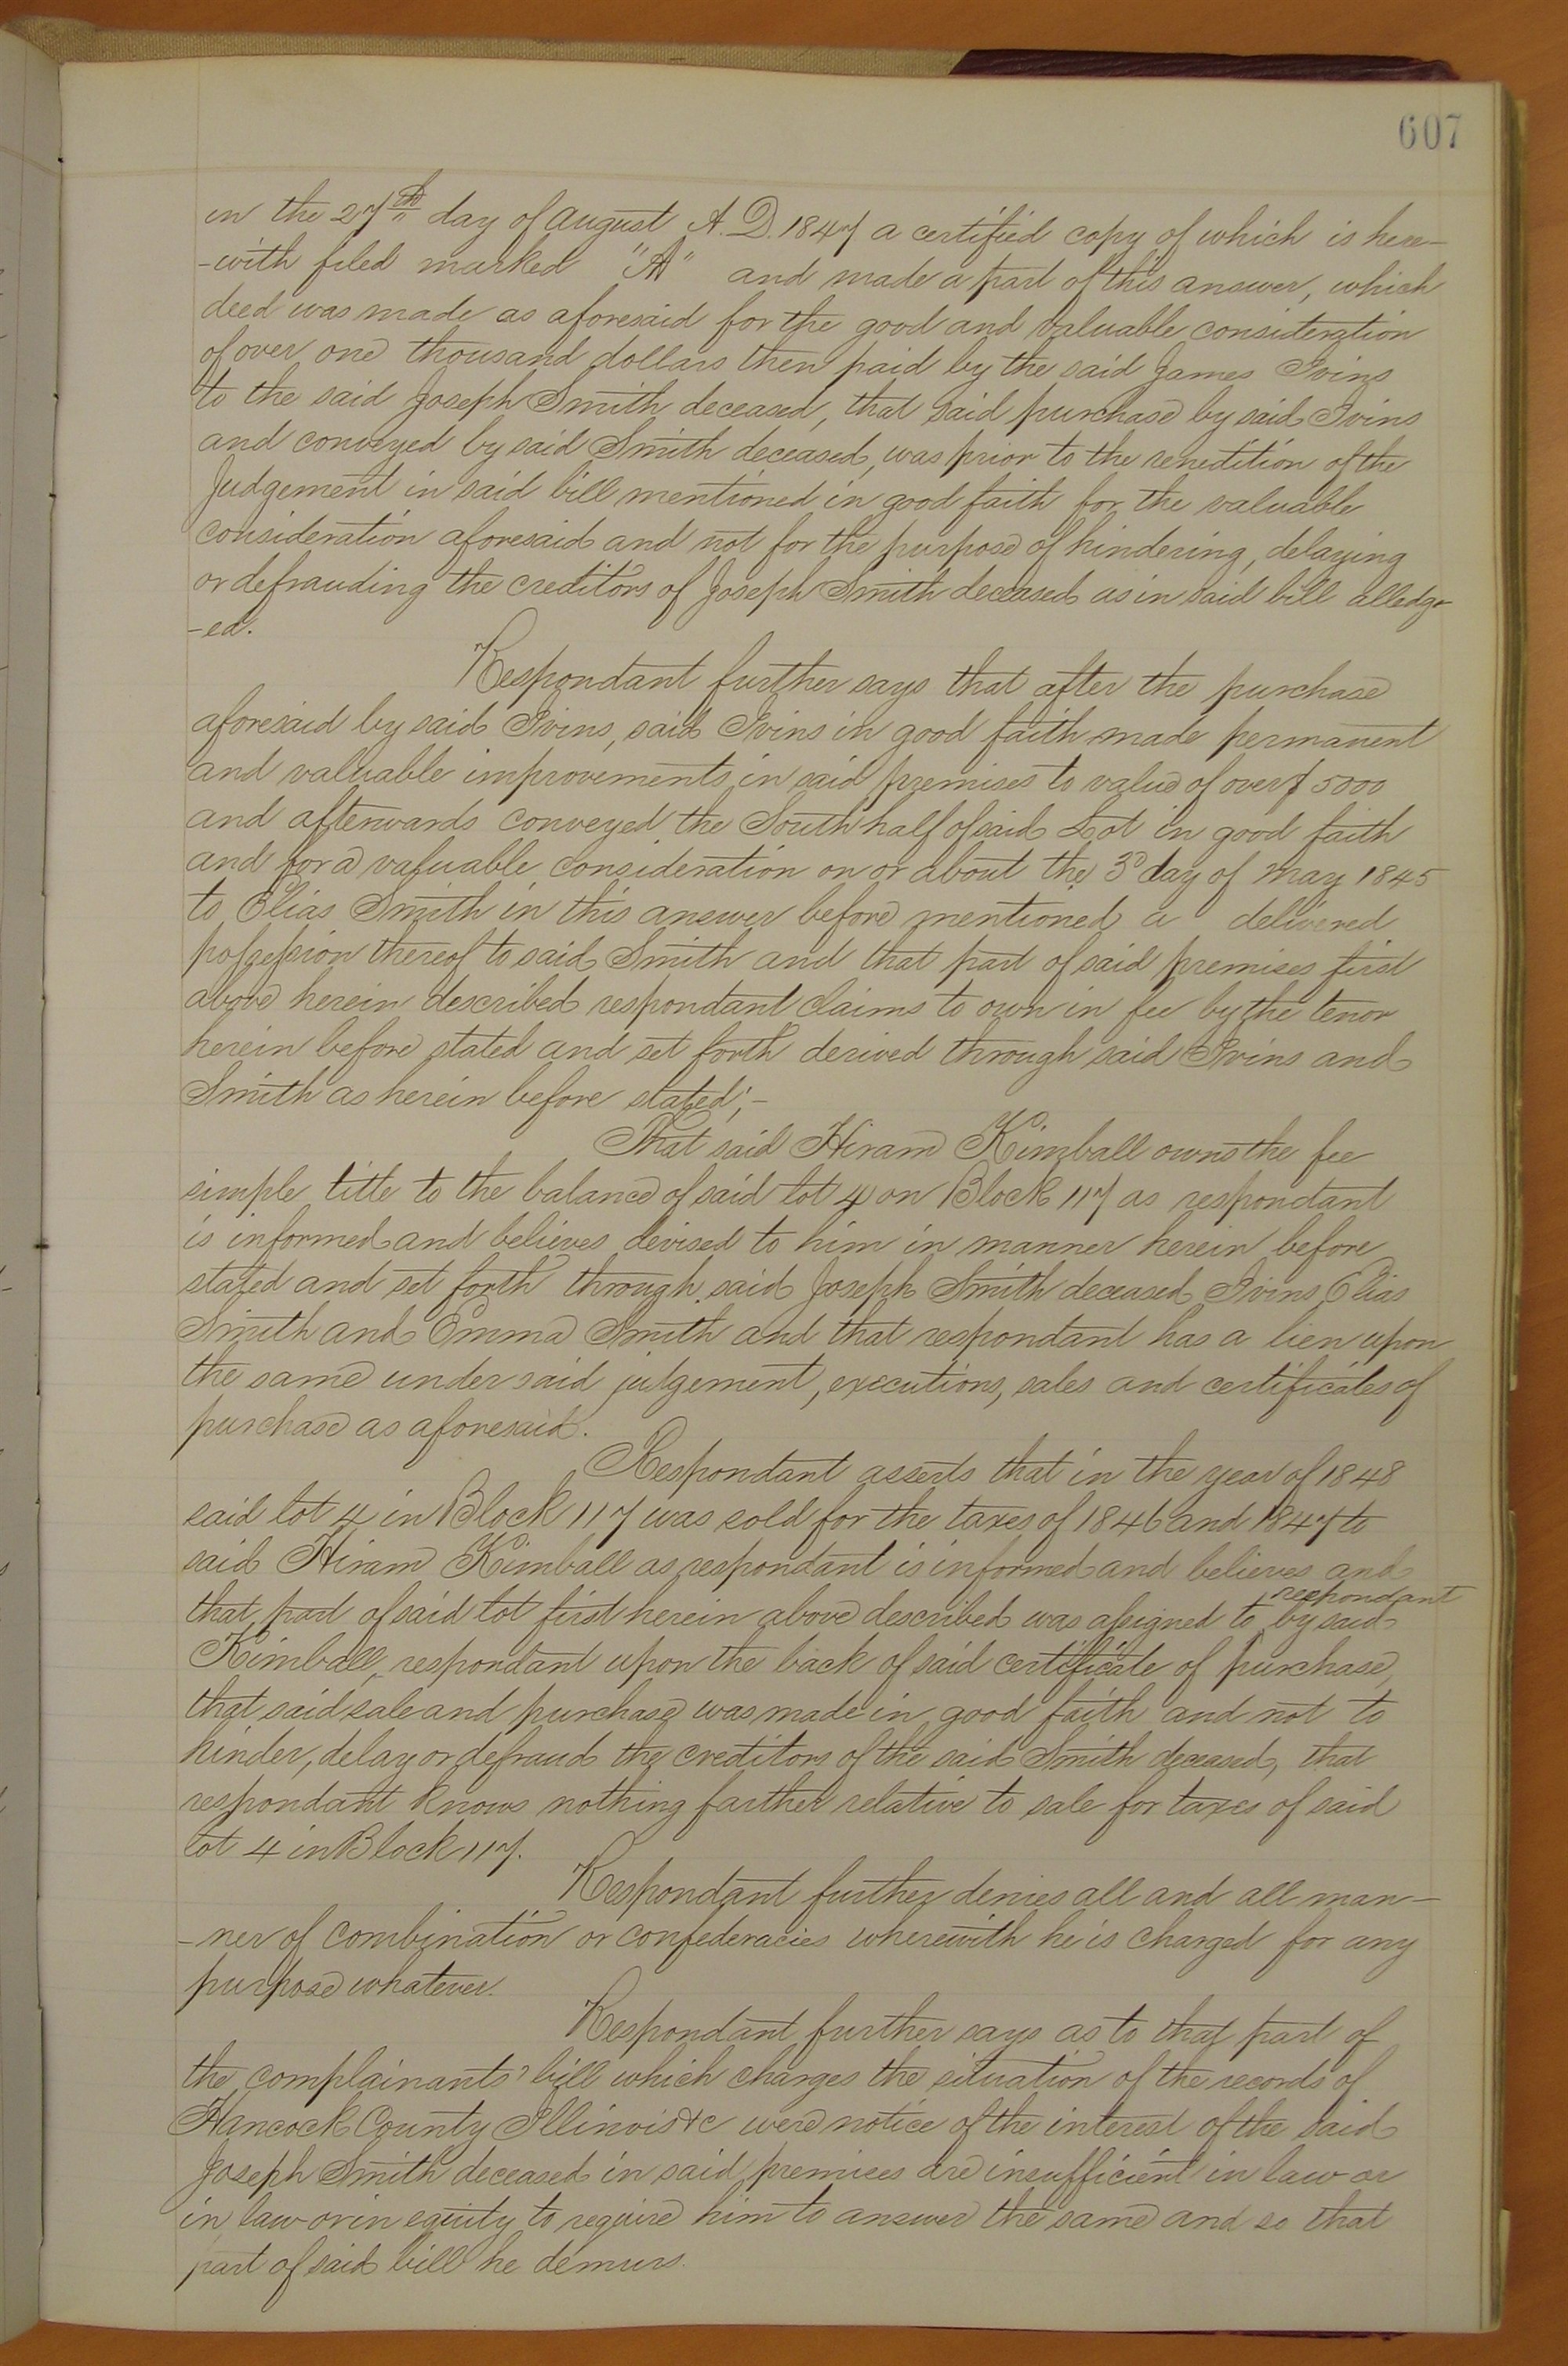 607
in the 27th day of August A. D. 1847 a certified copy of which is here-
-with filed marked "A" and made a part of this answer, which
deed was made as aforesaid for the good and valuable consideration
of over one thousand dollars then paid by the said James Ivins
to the said Joseph Smith deceased, that said purchase by said Ivins
and conveyed by said Smith deceased, was prior to the renedition of the
Judgement in said bill mentioned in good faith for the valuable
consideration aforesaid and not for the purpose of hindering, delaying
or defrauding the creditors of Joseph Smith deceased as in said bill alledg-
-ed.
Respondant further says that after the purchase
aforesaid by said Ivins, said Ivins in good faith made permanent
and valuable improvements in said premises to value of over $5000
and afterwards conveyed the South half of said Lot in good faith
and for a valuable consideration on or about the 3d day of May 1845
to Elias Smith in this answer before mentioned a delivered
possession thereof to said Smith and that part of said premises first
above herein described respondant claims to own in fee by the tenor
herein before stated and set forth derived through said Ivins and
Smith as herein before stated;-
That said Hiram Kimball owns the fee
simple title to the balance of said lot 4 on Block 117 as respondant
is informed and believes devised to him in manner herein before
stated and set forth through said Joseph Smith deceased Ivins Elias
Smith and Emma Smith and that respondant has a lien upon
the same under said judgement, executions, sales and certificates of
purchase as aforesaid.
Respondant asserts that in the year of 1848
said lot 4 in Block 117 was sold for the taxes of 1846 and 1847 to
said Hiram Kimball as respondant is informed and believes and
that part of said lot first herein above described was assigned to respondant by said
Kimball, respondant upon the back of said certificate of purchase,
that said sale and purchase was made in good faith and not to
hinder, delay or defraud the creditors of the said Smith deceased, that
respondant knows nothing farther relative to sale for taxes of said
lot 4 in Block 117.
Respondant further denies all and all man-
-ner of combination or confederacies wherewith he is charged for any
purpose whatever.
Respondant further says as to that part of
the complainants' bill which charges the situation of the records of
Hancock County Illinois &c were notice of the interest of the said
Joseph Smith deceased in said premises are insufficient in law or
in law or in equity to require him to answer the same and so that
part of said bill he demurs.